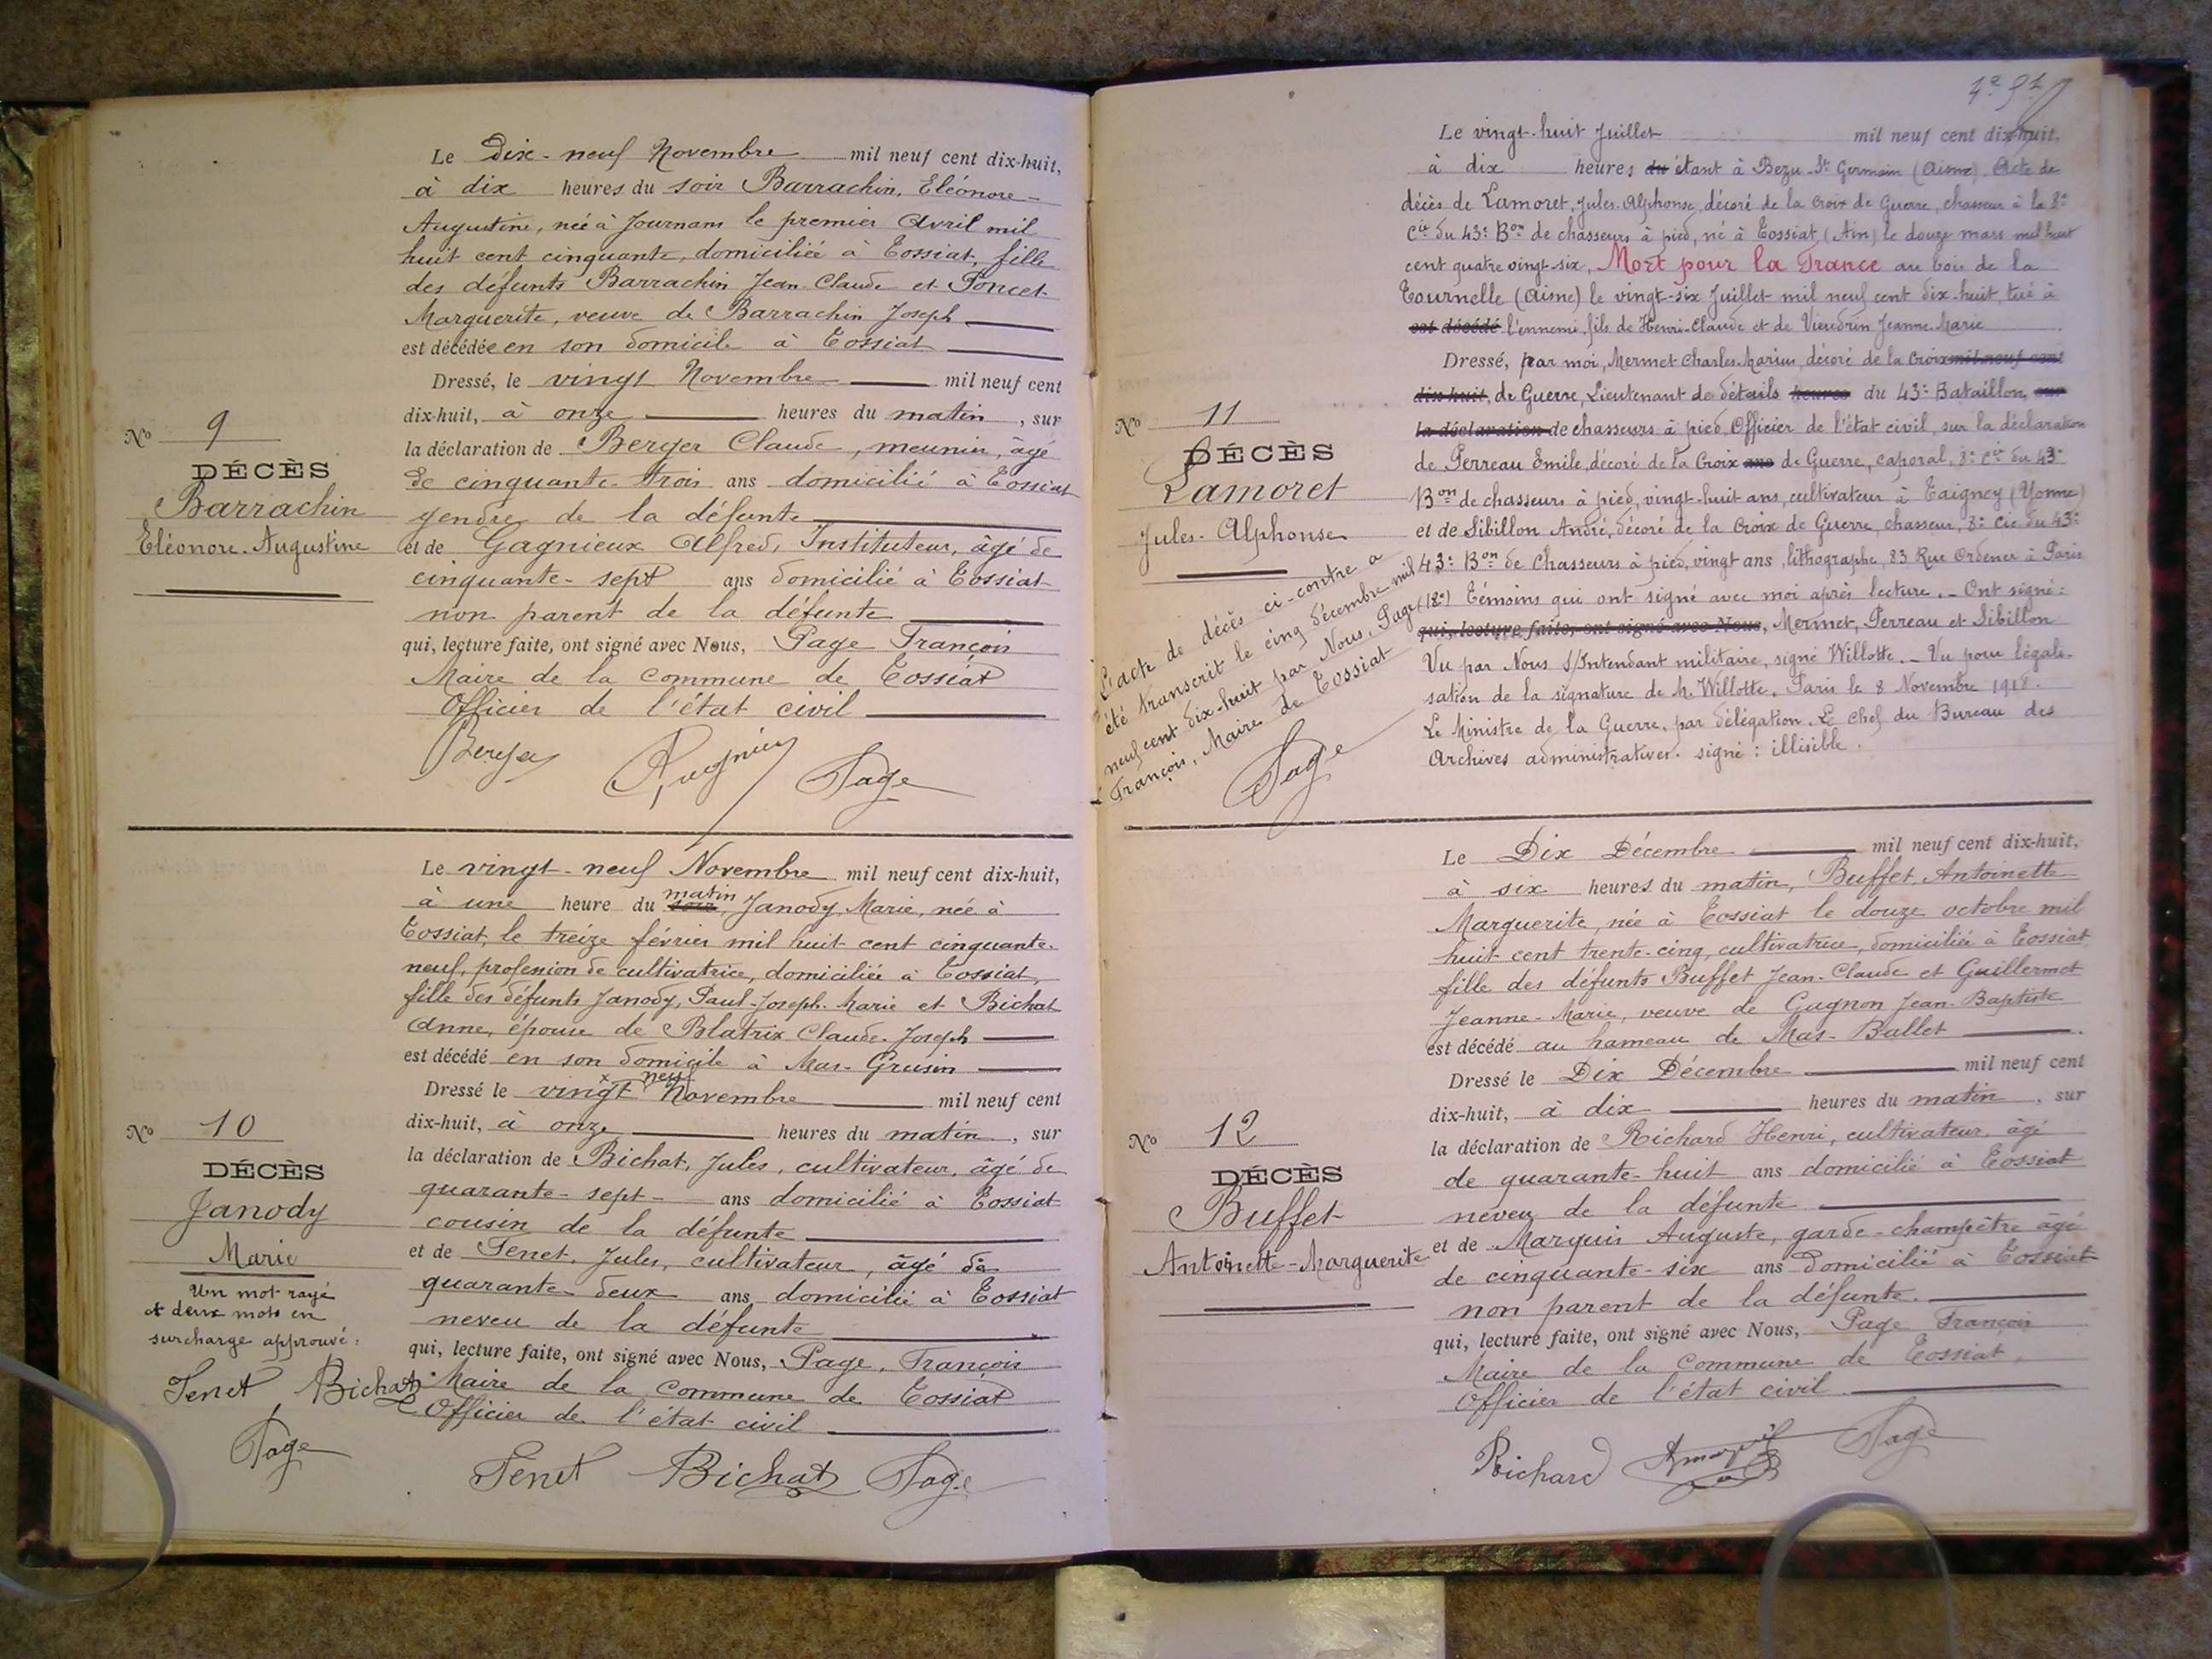 Le Dix-neuf Novembre mil neuf cent dix-huit,
à dix heures du soir Barrachin, Eléonore-
Augustine, née à Journans le premier Avril mil
huit cent cinquante, domiciliée à Tossiat, fille
des défunts Barrachin Jean-Claude et Poncet
Marguerite, veuve de Barrachin Joseph
est décédée en son domicile à Tossiat
Dressé, le vingt Novembre mil neuf cent
dix-huit, à onze heures du matin, sur
la déclaration de Berger Claude, meunier, âgé
de cinquante-trois ans domicilié à Tossiat
gendre de la défunte
et de Gagnieux Alfred, Instituteur, âgé de
cinquante-sept ans domicilié à Tossiat
non parent de la défunte
qui, lecture faite, ont signé avec Nous, Page François
Maire de la Commune de Tossiat
Officier de l'état civil
Berger Page
No 9
DÉCÈS
Barrachin
Eléonore-Augustine
Le vingt-neuf Novembre mil neuf cent dix-huit,
à une heure du soir matin, Janody, Marie, née à
Tossiat, le treize février mil huit cent cinquante-
neuf, profession de cultivatrice, domiciliée à Tossiat,
fille des défunts Janody, Paul-Joseph-Marie et Bichat
Anne, épouse de Blatrix Claude-Joseph
est décédé en son domicile à Mas-Grusin
Dressé le vingt neuf Novembre mil neuf cent
dix-huit, à onze heures du matin, sur
la déclaration de Bichat, Jules, cultivateur, âgé de
quarante-sept- ans domicilié à Tossiat
cousin de la défunte
et de Tenet, Jules, cultivateur, âgé de
quarante-deux ans domicilié à Tossiat
neveu de la défunte
qui, lecture faite, ont signé avec Nous, Page, François
Maire de la Commune de Tossiat
Officier de l'état civil
Tenet Bichat Page
No 10
DÉCÈS
Janody
Marie
Un mot rayé
et deux mots en
surcharge approuvé:
Tenet Bichat
Page
Le vingt-huit Juillet mil neuf cent dix-huit,
à dix heures du étant à Bezu-St Germain (Aisne) Acte de
décès de Lamoret, Jules-Alphonse, décoré de la Croix de Guerre, chasseur à la 8e
Cie du 43e Bon de chasseurs à pied, né à Tossiat (Ain) le douze mars mil huit
cent quatre vingt-six, Mort pour la France au bois de la
Tournelle (Aisne) le vingt-six Juillet mil neuf cent dix-huit, tué à
est décédé l'ennemi, fils de Henri-Claude et de Vieudrin Jeanne-Marie
Dressé, par moi, Mermet Charles-Marius, décoré de la Croix mil neuf cent
dix-huit, de Guerre, Lieutenant de détails heures du 43e Bataillon, sur
la déclaration de chasseurs à pied, Officier de l'état civil, sur la déclaration
de Perreau Emile, décoré de la Croix ans de Guerre, caporal, 8e Cie du 43e
Bon de chasseurs à pied, vingt-huit ans, cultivateur à Taigney (Yonne)
et de Sibillon André, décoré de la Croix de Guerre, chasseur, 8e Cie du 43e
43e Bon de Chasseurs à pied, vingt ans, lithographe, 83 Rue Ordener à Paris
(18e) Témoins qui ont signé avec moi après lecture. - Ont signé:
qui, lecture faite, ont signé avec Nous, Mermet, Perreau et Sibillon
Vu par Nous S/Intendant militaire, signé Willotte. - Vu pour légali-
sation de la signature de M. Willotte. Paris le 8 Novembre 1918.
Le Ministre de la Guerre, par délégation. Le Chef du Bureau des
Archives administratives. signé: illisible.
No 11
DÉCÈS
Lamoret
Jules-Alphonse
L'acte de décès ci-contre a
été transcrit le cinq décembre mil
neuf cent dix-huit par Nous, Page
François, Maire de Tossiat
Page
Le Dix Décembre mil neuf cent dix-huit,
à six heures du matin, Buffet, Antoinette
Marguerite, née à Tossiat le douze octobre mil
huit cent trente-cinq, cultivatrice, domiciliée à Tossiat,
fille des défunts Buffet Jean-Claude et Guillermet
Jeanne-Marie, veuve de Gugnon Jean-Baptiste
est décédé au hameau de Mas-Ballet
Dressé le Dix Décembre mil neuf cent
dix-huit, à dix heures du matin, sur
la déclaration de Richard Henri, cultivateur, âgé
de quarante-huit ans domicilié à Tossiat
neveu de la défunte
et de Marquis Auguste, garde-champêtre âgé
de cinquante-six ans domicilié à Tossiat
non parent de la défunte.
qui, lecture faite, ont signé avec Nous, Page François
Maire de la Commune de Tossiat,
Officier de l'état civil
Richard Page
No 12
DÉCÈS
Buffet
Antoinette-Marguerite